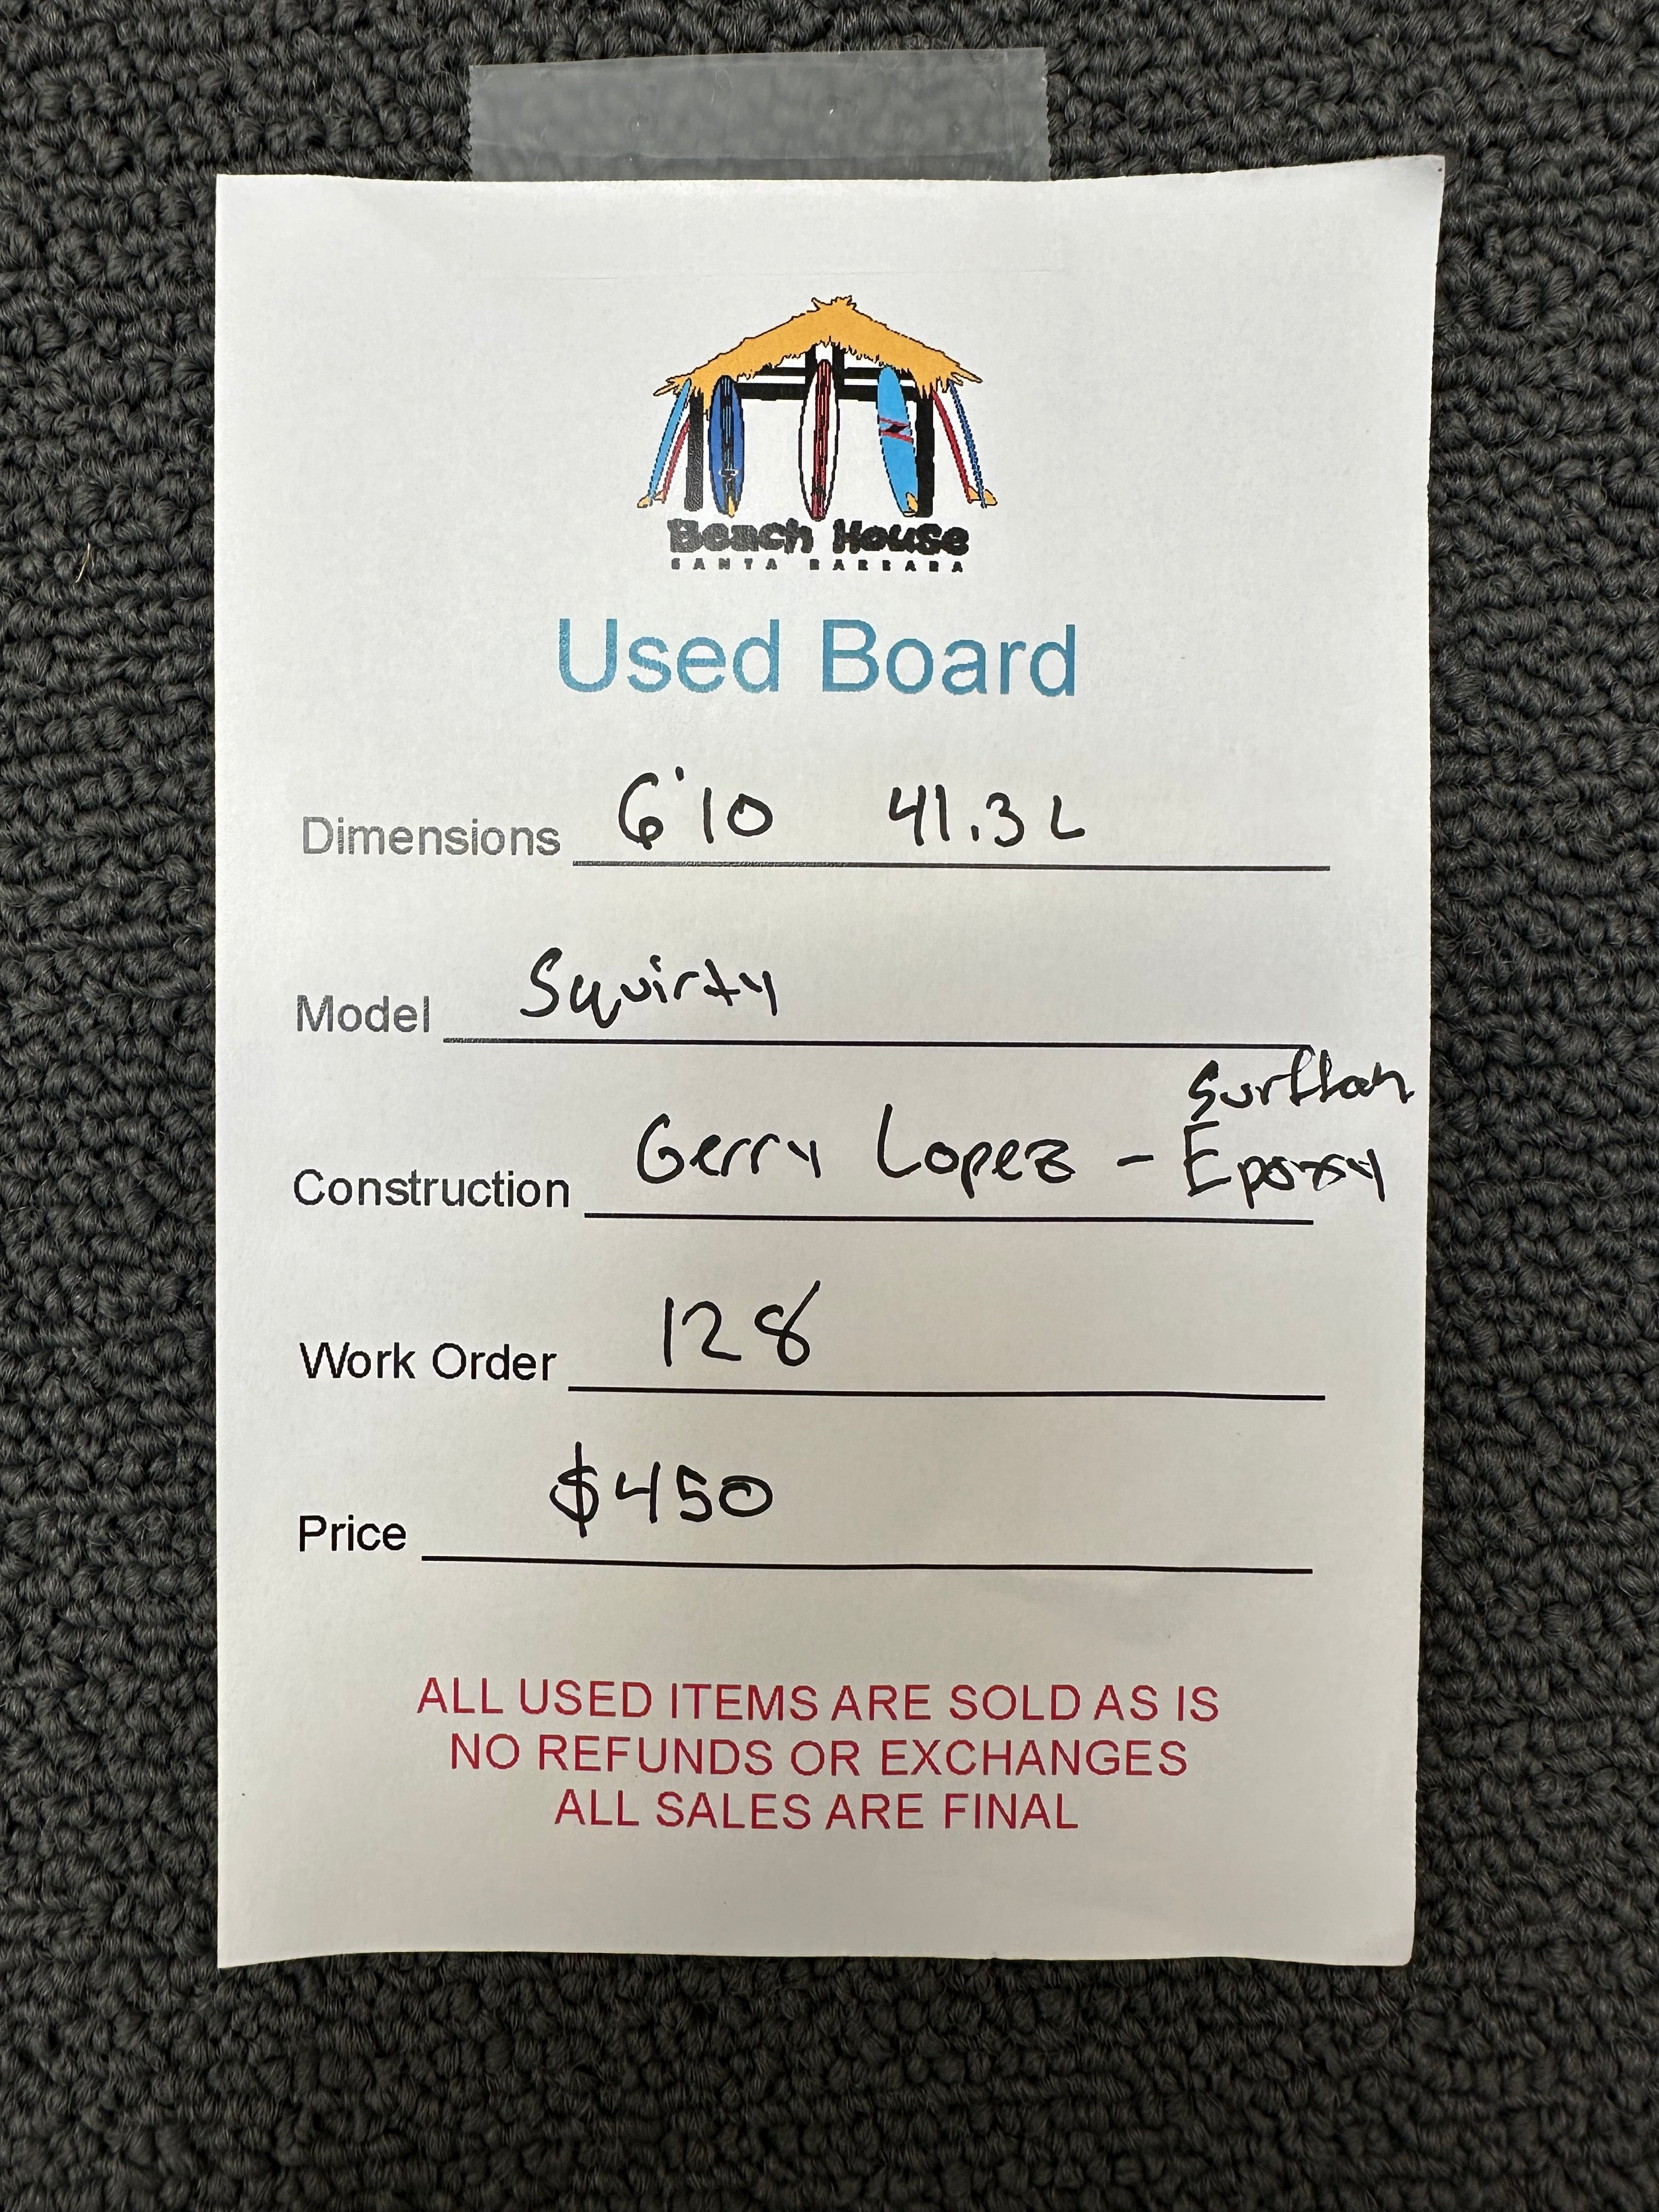 Beach House
SANTA BARBARA
Used Board
Dimensions 6'10 41.3 L
Model Squirty
Construction Gerry Lopez - Surftech Epoxy
Work Order 128
Price $450
ALL USED ITEMS ARE SOLD AS IS
NO REFUNDS OR EXCHANGES
ALL SALES ARE FINAL